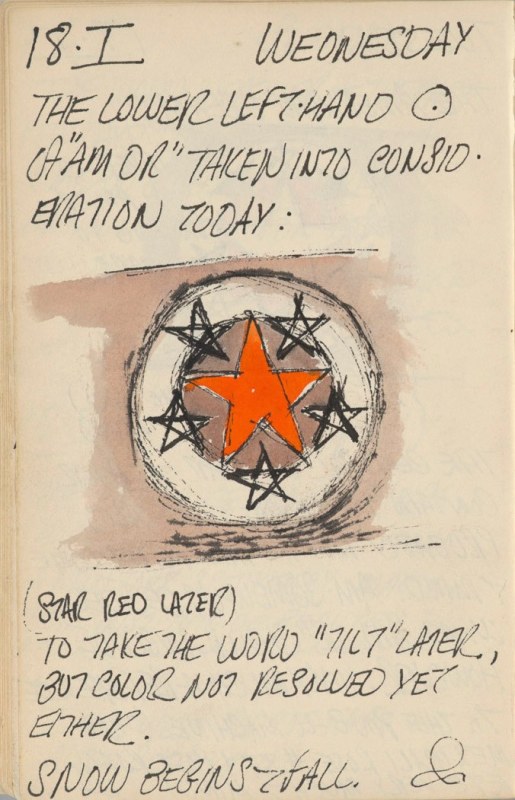 18·I WEDNESDAY
THE LOWER LEFT·HAND ⊙
OF "AM DR" TAKEN INTO CONSID·
ERATION TODAY:
(STAR RED LATER)
TO TAKE THE WORD "TILT" LATER,
BUT COLOR NOT RESOLVED YET
EITHER.
SNOW BEGINS FALL.